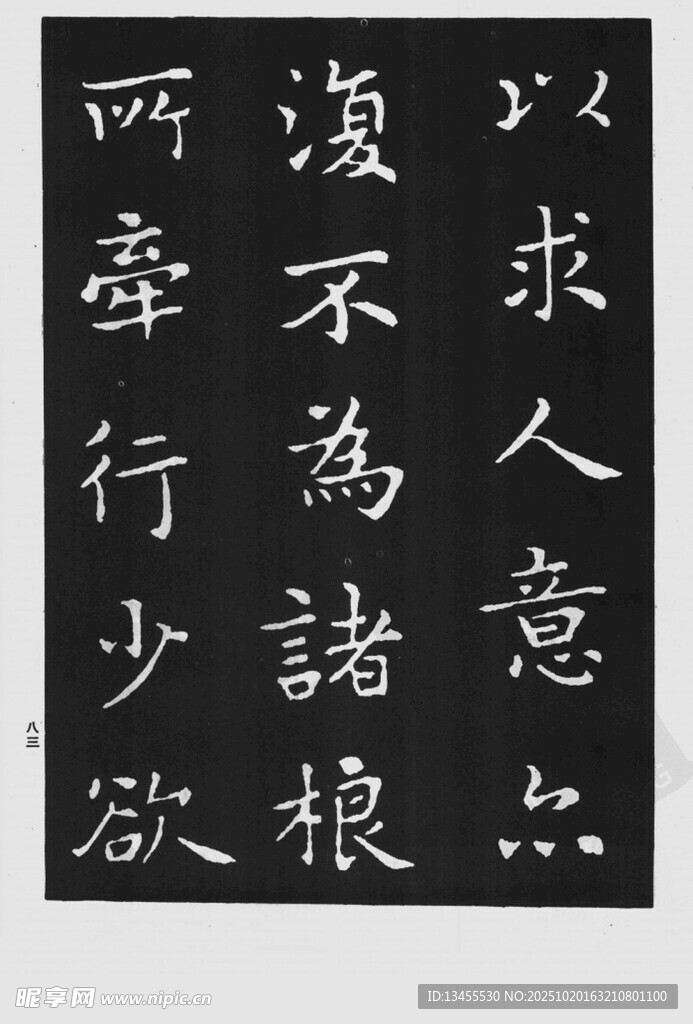 以求人意亦
復不為諸根
所牽行少欲
八三
昵享网 www.nipic.cn
ID:13455530 NO:20251020163210801100